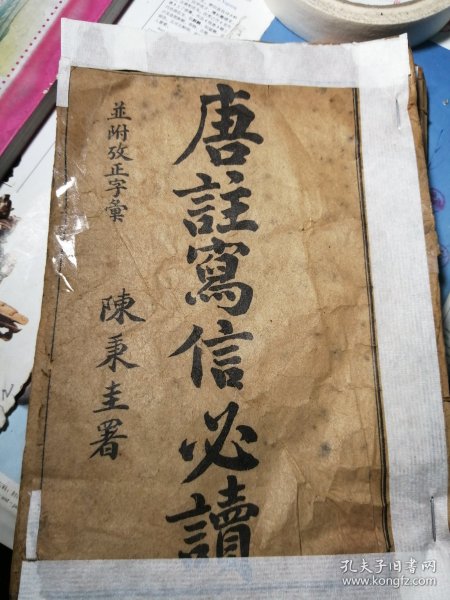 唐註寫信必讀
並附攷正字彙
陳秉圭署
孔夫子旧书网
www.kongfz.com